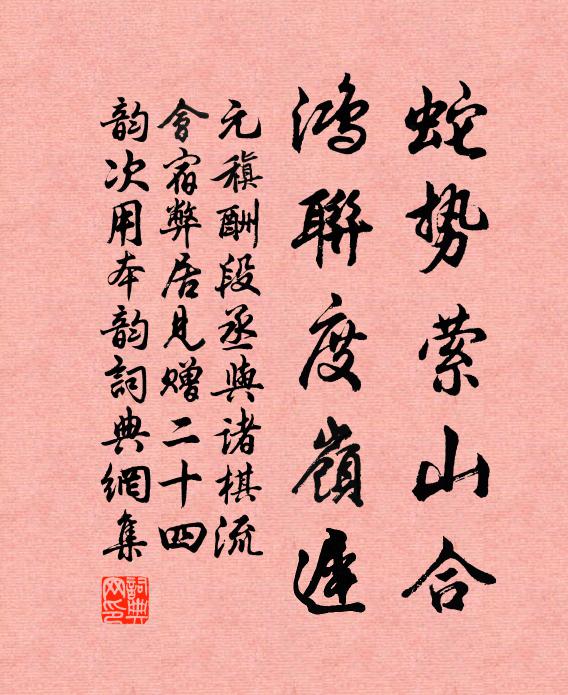 蛇势萦山合
鸿聯度嶺遲
元稹酬段丞與诸棋流
會宿弊居見赠二十四
韵次用本韵詞典網集
詞典网印